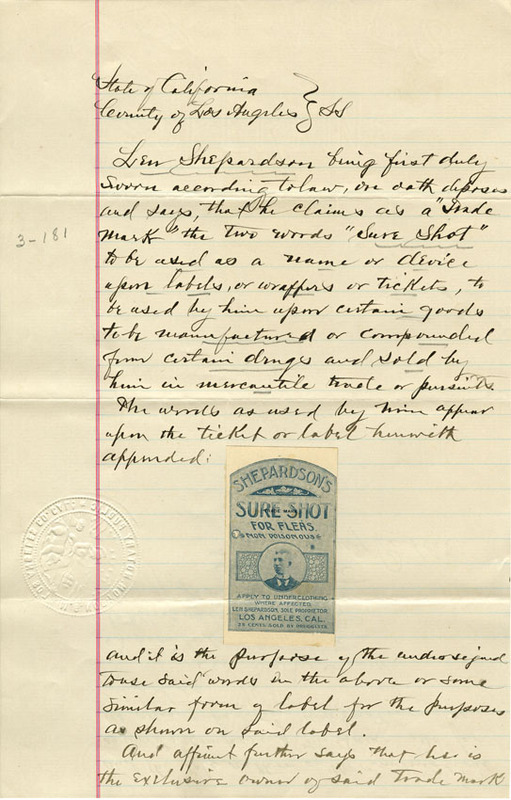 State of California
County of Los Angeles } SS
Len Shepardson being first duly
Sworn according to law, on oath deposes
and says, that he claims as a "Trade
mark" the two words "Sure Shot"
to be used as a name or device
upon labels, or wrappers or tickets, to
be used by him upon certain goods
to be manufactured or compounded
from certain druges and sold by
him in mercantile trade or pursuits.
The words as used by him appear
upon the ticket or label herewith
appended:
3-181
SHEPARDSON'S
SURE-SHOT
FOR FLEAS.
NON POISONOUS
APPLY TO UNDERCLOTHING
WHERE AFFECTED.
LEN SHEPARDSON, SOLE PROPRIETOR
LOS ANGELES, CAL.
25 CENTS SOLD BY DRUGGISTS
and it is the purpose of the undersigned
to use said words in the above or some
similar form of label for the purposes
as shown on said label.
And affiant further says that he is
the exclusive owner of said trade mark